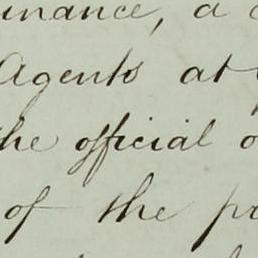 inance, a
Agents at
the official o
of the